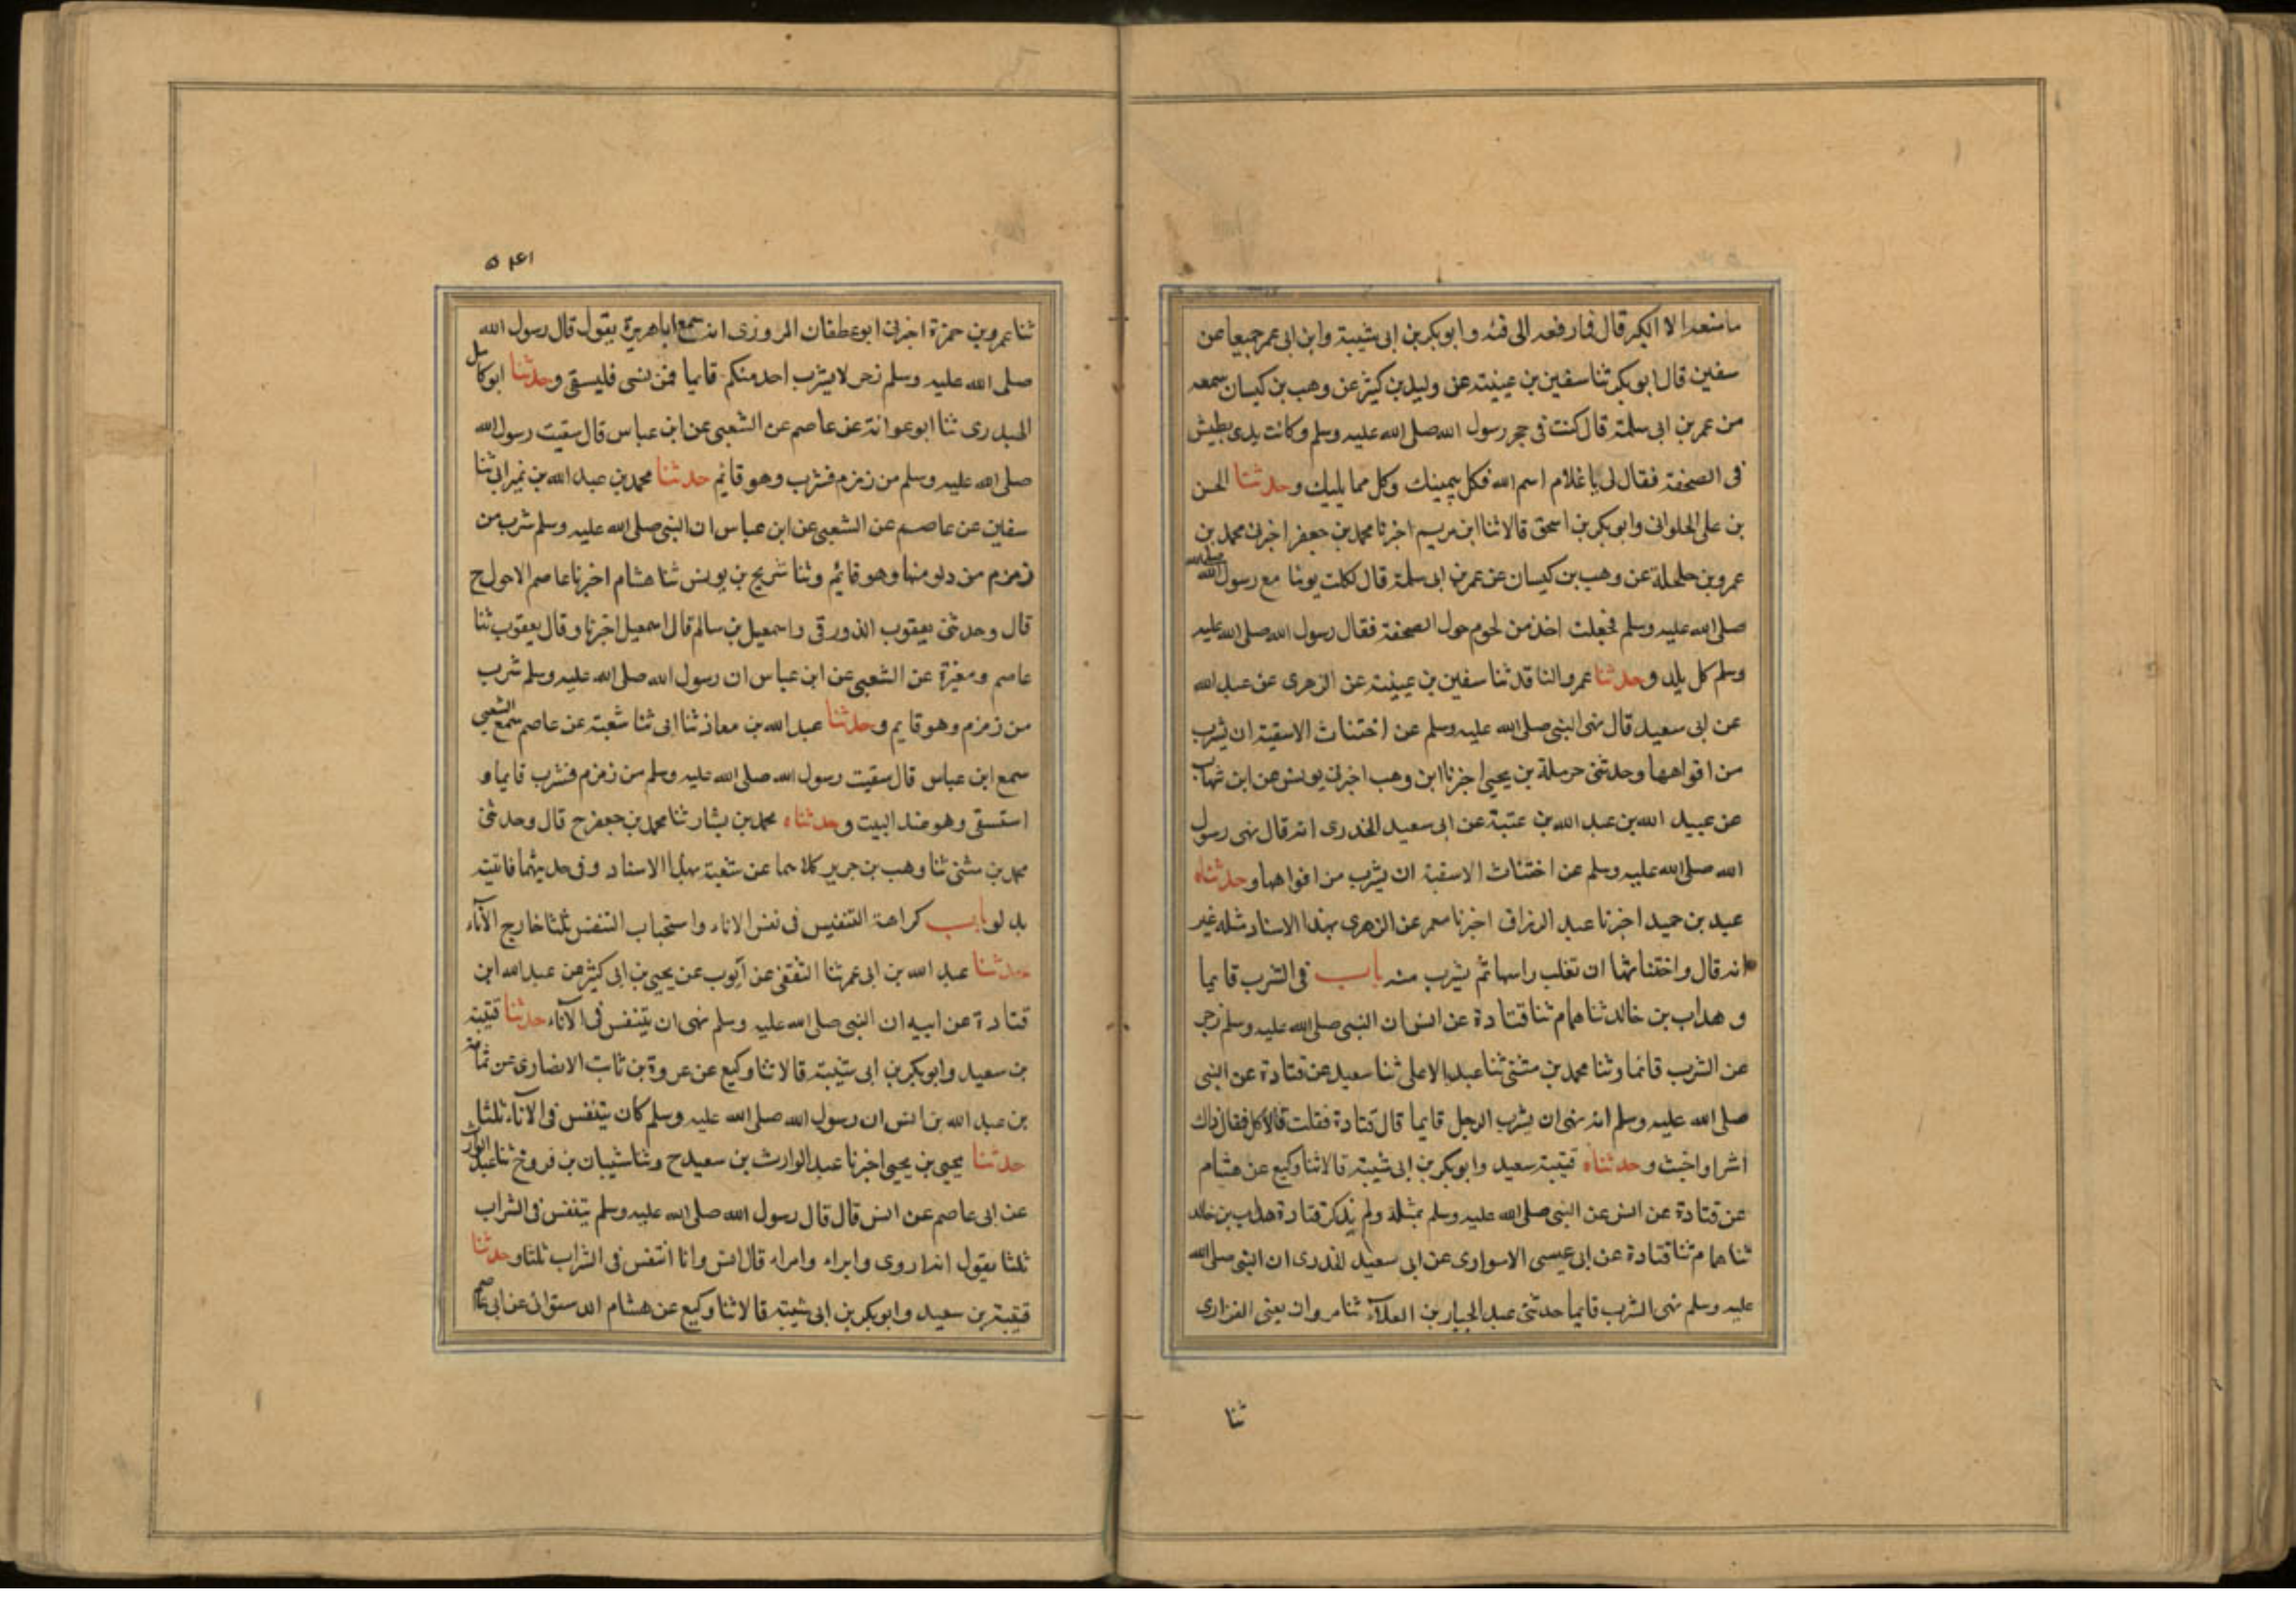 ما منعه الا الكبر قال فما رفعه الى فيه وابو بكر بن ابى شيبة وابن ابى عمر جميعا عن
سفين قال ابو بكر ثنا سفين بن عيينة عن وليد بن كثير عن وهب بن كيسان سمعه
من عمر بن ابى سلمة قال كنت فى حجر رسول الله صلى الله عليه وسلم وكانت يدى بطيش
فى الصحفة فقال لى يا غلام اسم الله فكل بيمينك وكل مما يليك وحدثنا الحسن
بن على الحلوانى وابو بكر بن اسحق قالا ثنا ابن مريم اخبرنا محمد بن جعفر اخبرنى محمد بن
عمرو بن حلحلة عن وهب بن كيسان عن عمر بن ابى سلمة قال كلت يوما مع رسول الله
صلى الله عليه وسلم فجعلت اخذ من لحوم حول الصحفة فقال رسول الله صلى الله عليه
وسلم كل يليه وحدثنا عمرو الناقد ثنا سفين بن عيينة عن الزهرى عن عبد الله
عن ابى سعيد قال نهى النبى صلى الله عليه وسلم عن اختناث الاسقية ان يشرب
من افواهها وحدثنى حرملة بن يحيى اخبرنا ابن وهب اخبرنى يونس عن ابن شهاب
عن عبيد الله بن عبد الله بن عتبة عن ابى سعيد الخدرى انه قال نهى رسول
الله صلى الله عليه وسلم عن اختناث الاسقية ان يشرب من افواهها وحدثناه
عبد بن حميد اخبرنا عبد الرزاق اخبرنا معمر عن الزهرى بهذا الاسناد مثله غير
انه قال واختناثها ان تقلب راسها ثم يشرب منه باب فى الشرب قايما
و هداب بن خالد ثنا همام ثنا قتادة عن انس ان النبى صلى الله عليه وسلم زجر
عن الشرب قائما وثنا محمد بن مثنى ثنا عبد الاعلى ثنا سعيد عن قتادة عن النبى
صلى الله عليه وسلم انه نهى ان يشرب الرجل قايما قال قتادة فقلت فالاكل فقال ذاك
اشر او اخبث وحدثناه قتيبة سعيد وابو بكر بن ابى شيبة قالا ثنا وكيع عن هشام
عن قتادة عن انس عن النبى صلى الله عليه وسلم بمثله ولم يذكر قتادة هداب بن خالد
ثنا همام ثنا قتادة عن ابى عيسى الاسوارى عن ابى سعيد الخدرى ان النبى صلى الله
عليه وسلم نهى الشرب قايما حدثنى عبد الجبار بن العلآء ثنا مروان يعنى الفزارى
ثنا
ثنا عمرو بن حمزة اخبرنى ابو عطفان المروزى انه سمع ابا هريرة يقول قال رسول الله
صلى الله عليه وسلم زجر لا يشرب احد منكم قايما فمن نسى فليستقى وحدثنا ابو كامل
الجحدرى ثنا ابو عوانة عن عاصم عن الشعبى عن ابن عباس قال سقيت رسول الله
صلى الله عليه وسلم من زمزم فشرب وهو قائم حدثنا محمد بن عبد الله بن نمير ابى ثنا
سفين عن عاصم عن الشعبى عن ابن عباس ان النبى صلى الله عليه وسلم شرب من
زمزم من دلو منها وهو قائم وثنا شريح بن يونس ثنا هشام اخبرنا عاصم الاحول ح
قال وحدثنى يعقوب الدورقى واسمعيل بن سالم قال اسمعيل اخبرنا وقال يعقوب ثنا
عاصم ومغيرة عن الشعبى عن ابن عباس ان رسول الله صلى الله عليه وسلم شرب
من زمزم وهو قايم وحدثنا عبد الله بن معاذ ثنا ابى ثنا شعبة عن عاصم سمع الشعبى
سمع ابن عباس قال سقيت رسول الله صلى الله عليه وسلم من زمزم فشرب قايما و
استسقى وهو عند البيت وحدثناه محمد بن بشار ثنا محمد بن جعفر ح قال وحدثنى
محمد بن مثنى ثنا وهب بن جرير كلاهما عن شعبة بهذا الاسناد وفى حديثهما فاتيته
بدلو باب كراهة التنفيس فى نفس الاناء واستحباب التنفس ثلثا خارج الآناء
حدثنا عبد الله بن ابى عمر ثنا الثقفى عن ايوب عن يحيى بن ابى كثير عن عبد الله ابن
قتادة عن ابيه ان النبى صلى الله عليه وسلم نهى ان يتنفس فى الآناء حدثنا قتيبة
بن سعيد وابو بكر بن ابى شيبة قالا ثنا وكيع عن عروة بن ثابت الانصارى عن ثمامة
بن عبد الله بن انس ان رسول الله صلى الله عليه وسلم كان يتنفس فى الآناء ثلثا
حدثنا يحيى بن يحيى اخبرنا عبد الوارث بن سعيد ح وثنا شيبان بن فروخ ثنا عبد الوارث
عن ابى عاصم عن انس قال قال رسول الله صلى الله عليه وسلم يتنفس فى الشراب
ثلثا يقول انه اروى وابراء وامراء قال انس وانا اتنفس فى الشراب ثلثا وحدثنا
قتيبة بن سعيد وابو بكر بن ابى شيبة قالا ثنا وكيع عن هشام الدستوانى عن ابى عاصم